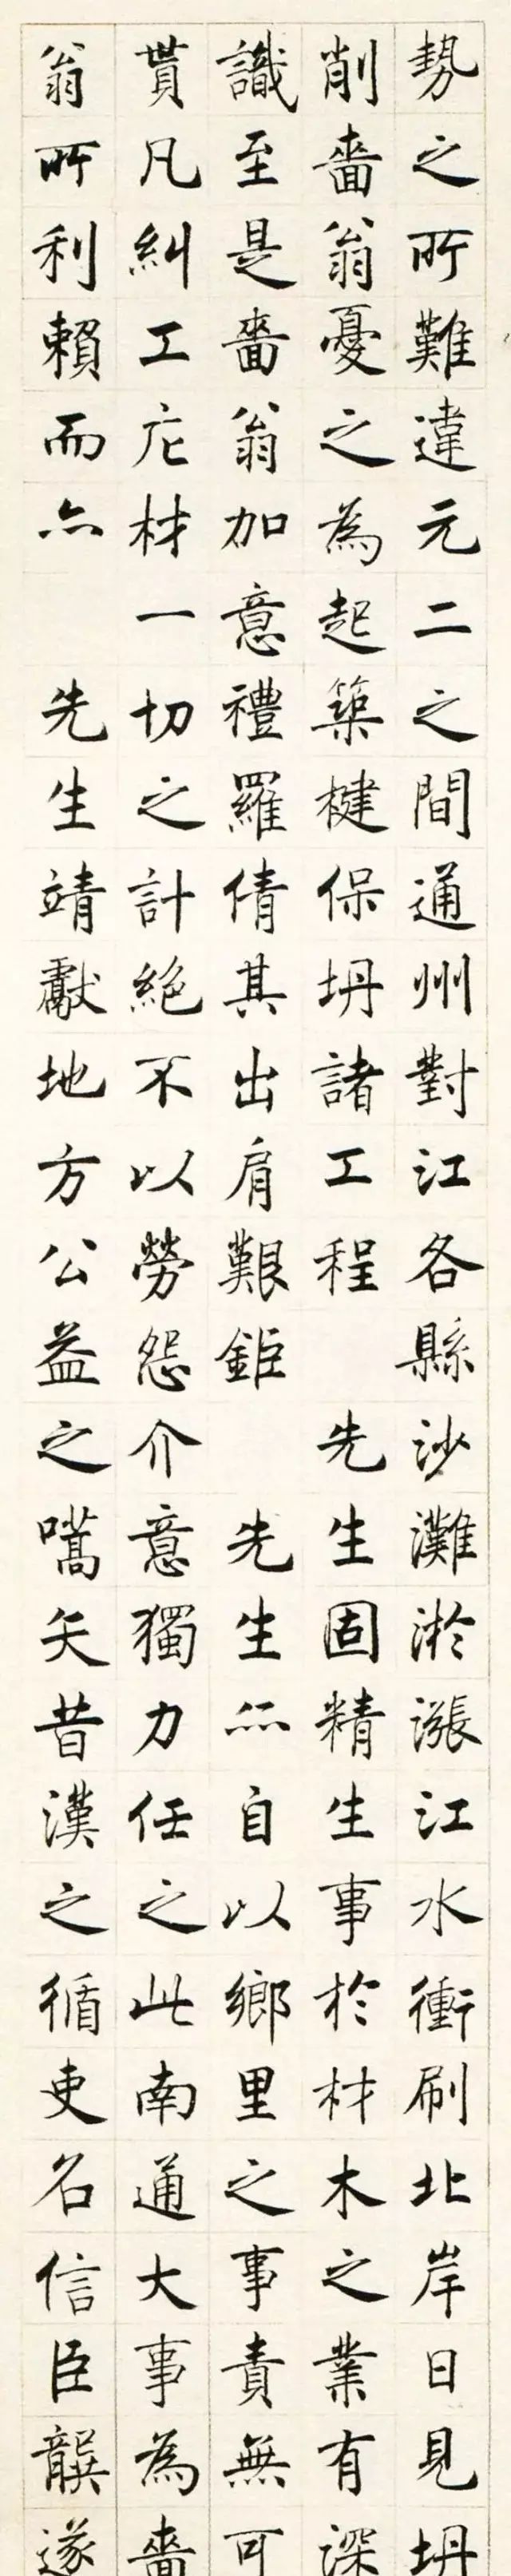 勢之所難違元二之間通州對江各縣沙灘淤漲江水衝刷北岸日見坍
削嗇翁憂之為起築楗保坍諸工程 先生固精生事於材木之業有深
識至是嗇翁加意禮羅倩其出肩艱鉅 先生亦自以鄉里之事責無可
貰凡糾工庀材一切之計絕不以勞怨介意獨力任之此南通大事為嗇
翁所利賴而亦 先生靖獻地方公益之嚆矢昔漢之循吏名信臣龔遂